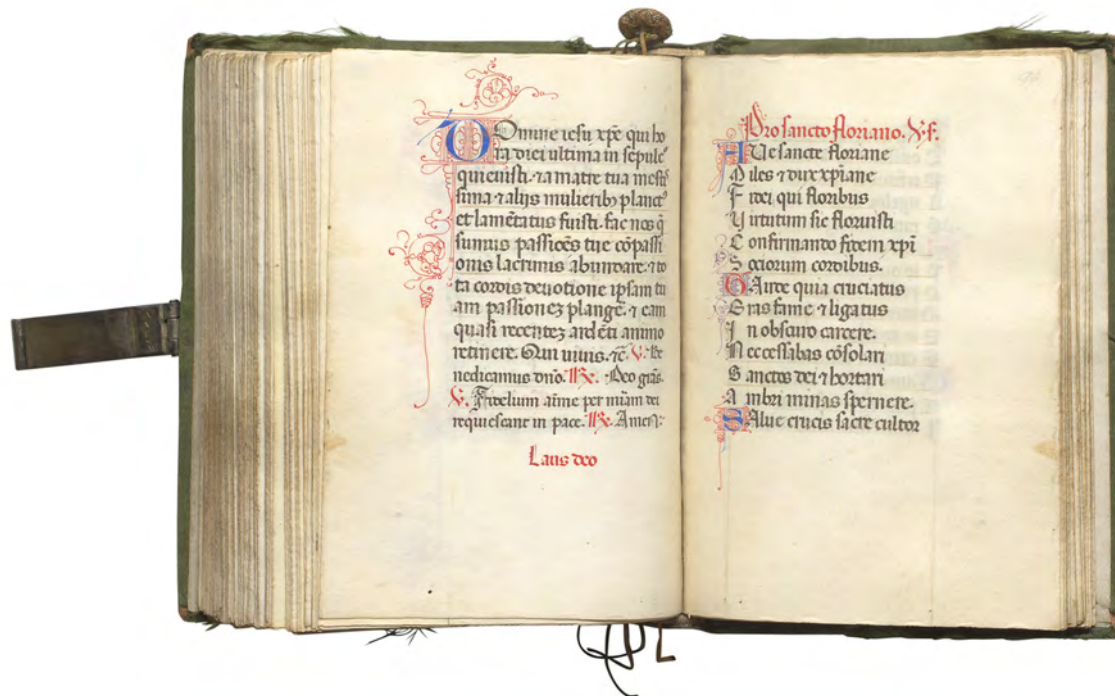 DOmine iesu xpē qui ho
ra diei ultima in sepulc᷒
quieuisti. ⁊ a matre tua mestis
sima ⁊ aliis mulierib⁊ planct᷒
et lamētatus fuisti. fac nos q̄
sumus passiōēs tue cōpassi
onis lacrimis abundare. ⁊ to
ta cordis deuotione ipsam tu
am passionez plange. ⁊ eam
quasi recentez ardēti animo
retinere. Qui uiuis. ⁊c̄. V. Be
nedicamus dn̄o. R. Deo gr̄as.
V. Fidelium aīme per mīam dei
requiescant in pace. R. Amen:
Laus deo
94
Pro sancto floriano. Xf.
AUe sancte floriane
Miles ⁊ dux xp̄iane
Fidei qui floribus
Uirtutum sic floruisti
Confirmando fidem xp̄i
Sociorum cordibus.
GAude quia cruciatus
Eras fame ⁊ ligatus
In obscuro carcere.
Nec cessabas cōsolari
Sanctos dei ⁊ hortari
Ambri minas spernere.
SAlue crucis sacre cultor